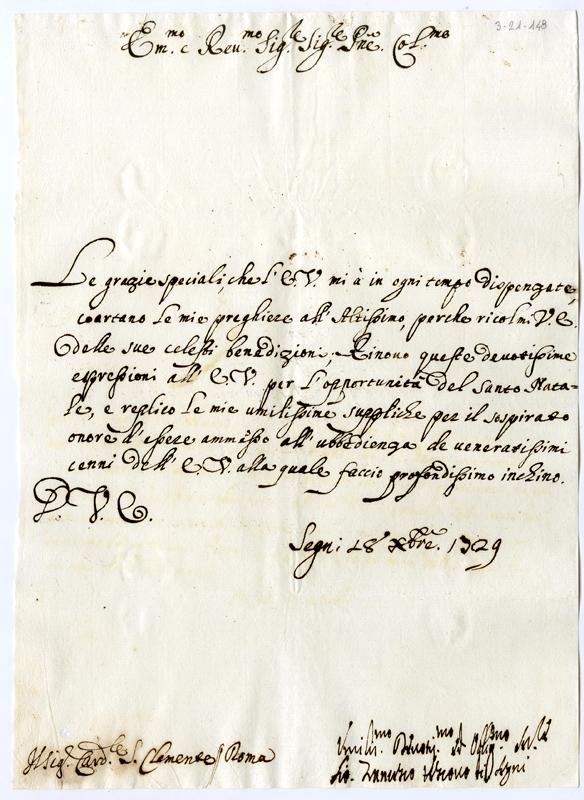 3-21-148
Em.mo e Reu.mo Sig.re Sig.re Pne. Col.mo
Le grazie speciali, che l'E.V. mi à in ogni tempo dispenzate,
coartano le mie preghiere all'Altissimo, perche ricolmi V.E.
delle sue celesti benedizioni. Rinovo queste devotissime
espressioni all'E.V. per l'opportunità del Santo Nata-
le, e replico le mie umilissime suppliche per il sospirato
onore d'essere ammesso all'ubbedienza de veneratissimi
cenni dell'E.V. alla quale faccio profondissimo inchino.
D. V. E.
Segni 18 Xbre. 1729
Sig. Card.le S. Clemente / Roma
Umiliss.mo Devotiss.mo et Obbl.mo
Vescovo di Segni